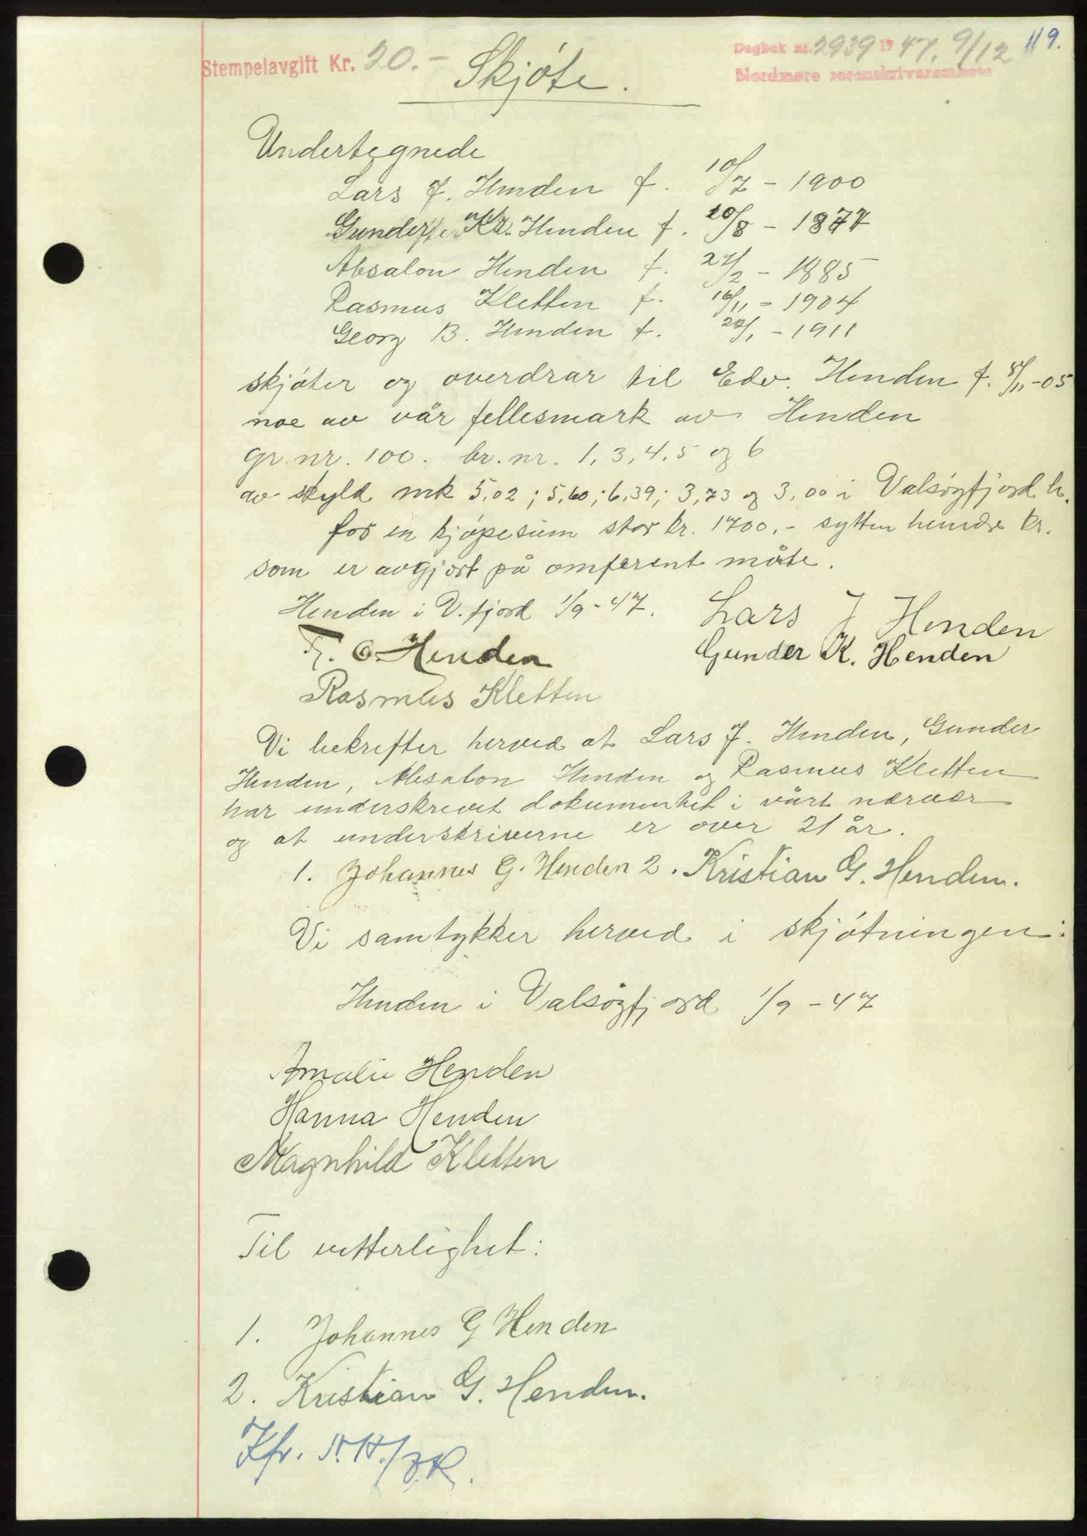 Stempelavgift Kr. 20.-
Dagbok nr. 2939 19 47. 9/12 119.
Nordmøre sorenskriverembete
Skjøte.
Undertegnede
Lars J. Henden f. 10/7 - 1900
Gunder Kr. Henden f. 20/8 - 1877
Absalon Henden f. 27/2 - 1885
Rasmus Kletten f. 16/11 - 1904
Georg B. Henden f. 22/1 - 1911
skjøter og overdrar til Edv. Henden f. 8/11 -05
noe av vår fellesmark av Henden
gr.nr. 100. br.nr. 1, 3, 4, 5 og 6
av skyld mk 5,02; 5,60; 6,39; 3,73 og 3,00 i Valsøyfjord h.
for en kjøpesum stor kr. 1700,- sytten hundre kr.
som er avgjort på omforent måte.
Henden i V. fjord 1/9 - 47. Lars J Henden
Henden Gunder K. Henden
Rasmus Kletten
Vi bekrefter herved at Lars J. Henden, Gunder
Henden, Absalon Henden og Rasmus Kletten
har underskrevet dokumentet i vårt nærvær
og at underskriverne er over 21 år.
1. Johannes G. Henden 2. Kristian G. Henden.
Vi samtykker herved i skjøtningen:
Henden i Valsøyfjord 1/9 - 47
Amalie Henden
Hanna Henden
Magnhild Kletten
Til vitterlighet:
1. Johannes G Henden
2. Kristian G. Henden.
Kfr.